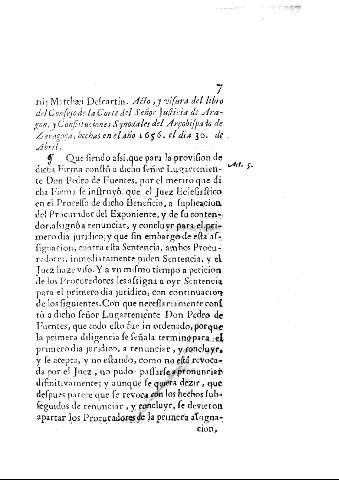 7
nis Matthæi Descartin. Acto, y visura del libro
del Consejo de la Corte del Señor Justicia de Ara-
gon, y Constituciones Synodales del Arçobispado de
Zaragoça, hechas en el año 1656. el dia 30. de
Abril.
¶ Que siendo assi, que para la provision de
dicha Firma constò a dicho señor Lugarteniente
Art. 5.
te Don Pedro de Fuentes, por el merito que di
cha Firma se instruyò, que el Juez Eclesiastico
en el Processo de dicho Beneficio, a suplicacion
del Procurador del Exponiente, y de su conten-
dor, assignò a renunciar, y concluyr para el pri-
mero dia juridico; y que sin embargo de esta as-
signacion, contra esta Sentencia, ambos Procu-
radores, inmediatamente piden Sentencia, y el
Juez haze viso. Y a vn mismo tiempo a peticion
de los Procuradores les assigna a oyr Sentencia
para el primero dia juridico, con continuacion
de los siguientes. Con que necessariamente cons
tò a dicho señor Lugarteniente Don Pedro de
Fuentes, que todo esto fue in ordenado, porque
la primera diligencia se señala termino para el
primero dia juridico, a renunciar, y concluyr,
y se acepta, y no estando, como no està revoca-
da por el Juez, no pudo passarse a pronunciar
difinitivamente; y aunque se quiera dezir, que
despues parece que se revoca con los hechos sub-
seguidos de renunciar, y concluyr, se devieron
apartar los Procuradores de la primera assigna-
cion,